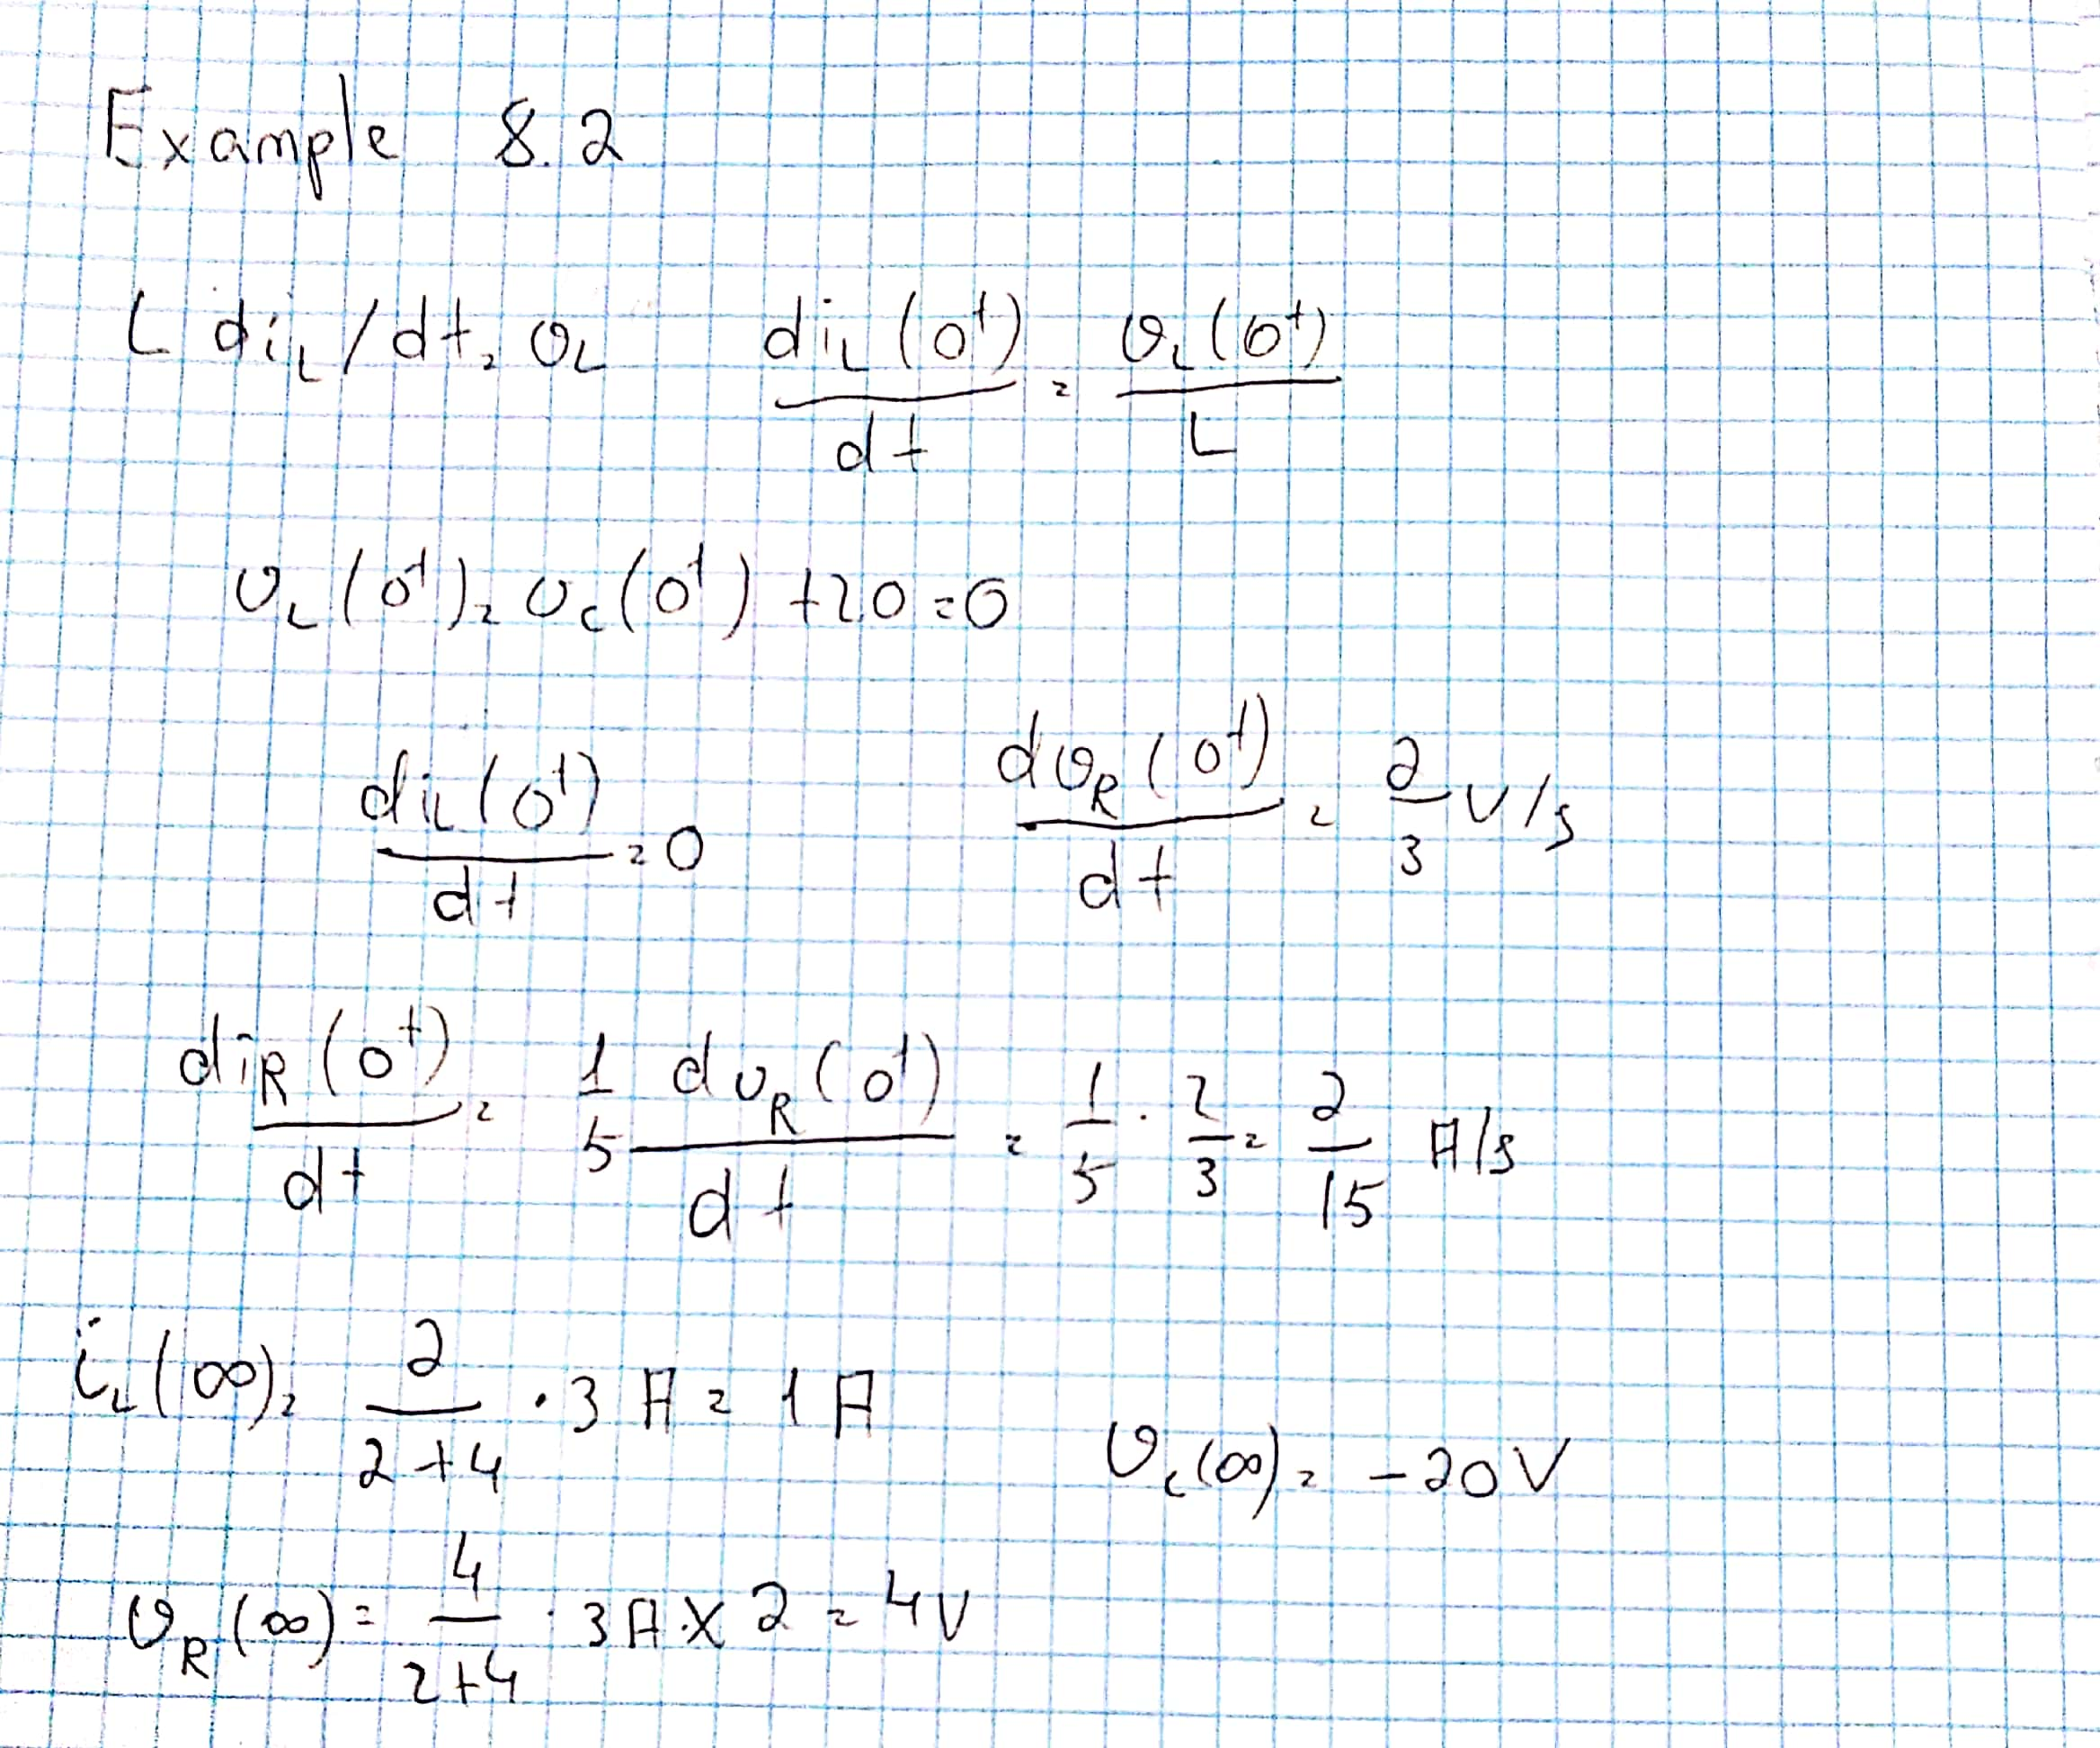 Example 8.2
L di_L/dt = v_L    di_L(0⁺)/dt = v_L(0⁺)/L
v_L(0⁺) = v_c(0⁺) + 20 = 0
di_L(0⁺)/dt = 0    dv_R(0⁺)/dt = 2/3 V/s
di_R(0⁺)/dt = 1/5 dv_R(0⁺)/dt = 1/5 · 2/3 = 2/15 A/s
i_L(∞) = 2/(2+4) · 3 A = 1 A    v_c(∞) = -20 V
v_R(∞) = 4/(2+4) · 3A × 2 = 4V